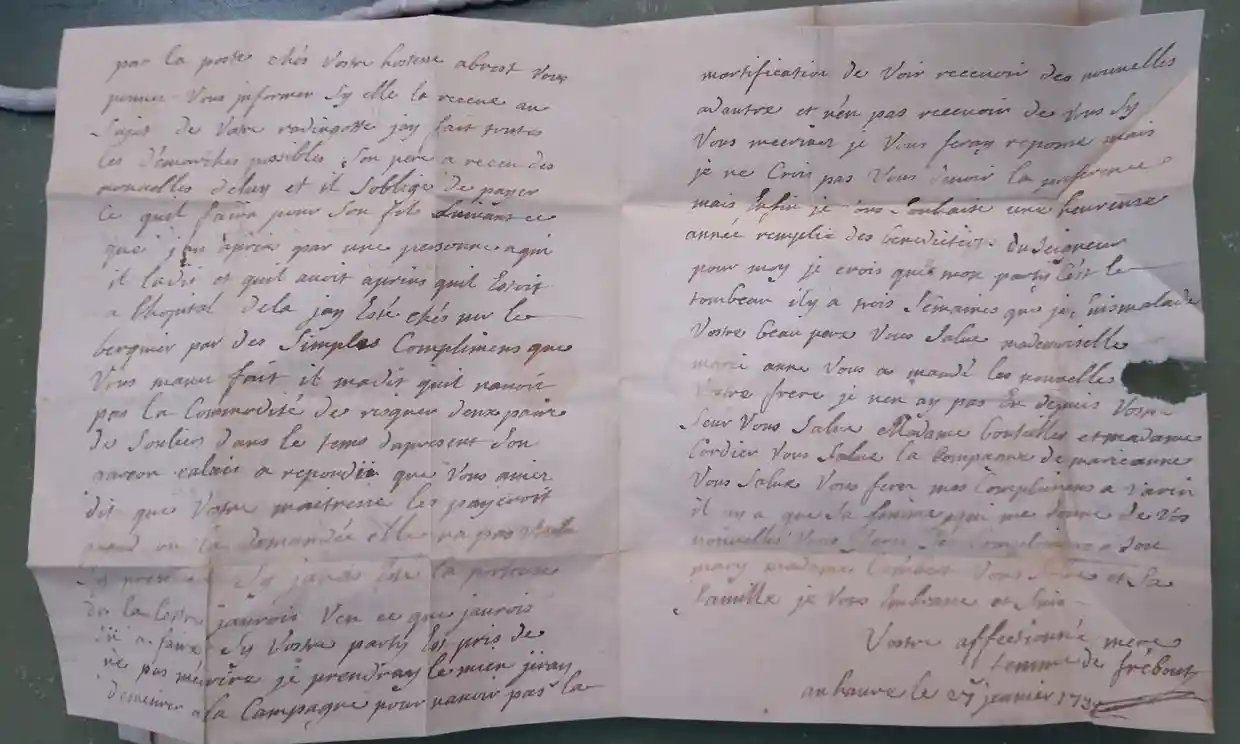 par la poste chés Vostre hostesse abrest vous
pouvez Vous jnformer Sy elle la receue au
Sujet de Votre redingotte jay fait toutes
les démarches possibles Son pere a receu des
nouvelles deluy et il Soblige de payer
Ce quil faira pour Son fils Suivant ce
que jen apris par une personne aqui
il ladit et quil avoit apris quil Estoit
a lhopital dela jay Esté chés mr le
berquier par des Simples Complimens que
Vous mavez fait il madit quil navoit
pas la Commodité de risquer deux paire
de Souliers dans le tems dapresent Son
garcon calais a repondu que Vous aviez
dit que Vostre maitresse les payeroit
quand on la demandée elle na pas
Sy javois Esté la porteuse
de la lettre jaurois Veu ce que jaurois
eu a faire Sy Vostre party Est pris de
ne pas mécrire je prendray le mien jiray
demeurer ala Campagne pour navoir pas la
mortification de Voir recevoir des nouvelles
adautre et nen pas recevoir de Vous Sy
Vous mecrivez je Vous feray reponse mais
je ne Crois pas Vous devoir la preference
mais Enfin je vous Souhaite une heureuse
année remplie des benedictions du Seigneur
pour moy je crois que mon party Cest le
tombeau il y a trois Semaines que je suis malade
Vostre beau pere Vous Salue mademoiselle
marie anne Vous a mandé les nouvelles
Vostre frere je nen ay pas Eu depuis Vostre
Seur Vous Salue Madame et madame
Cordier Vous Salue la Compagne de marie anne
Vous Salue Vous ferez mes Complimens a
il ny a que Sa femme qui me donne de Vos
nouvelles Vous ferez les Complimens a Son
mary madame Vous Salue et Sa
famille je Vous Embrasse et Suis
Vostre affectionnée mere
femme de frébourt
au havre le 27 janvier